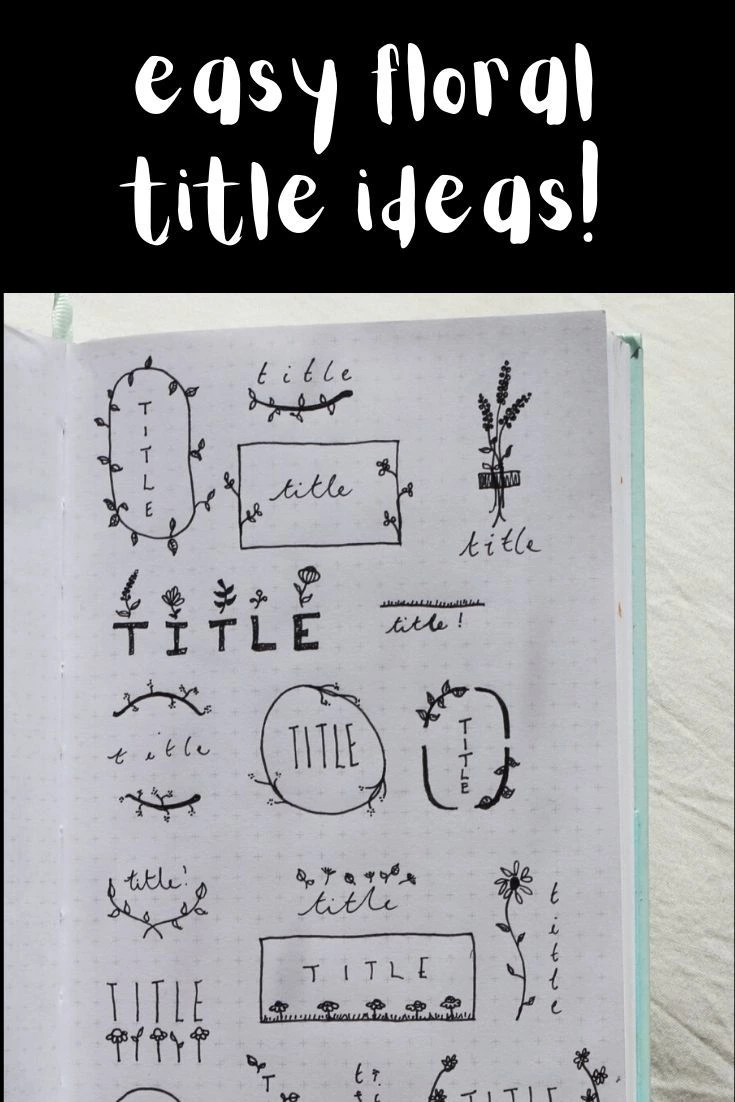 easy floral
title ideas!
TITLE
title
title
title
TITLE
title!
title
TITLE
TITLE
title!
title
title
TITLE
TITLE
TITLE